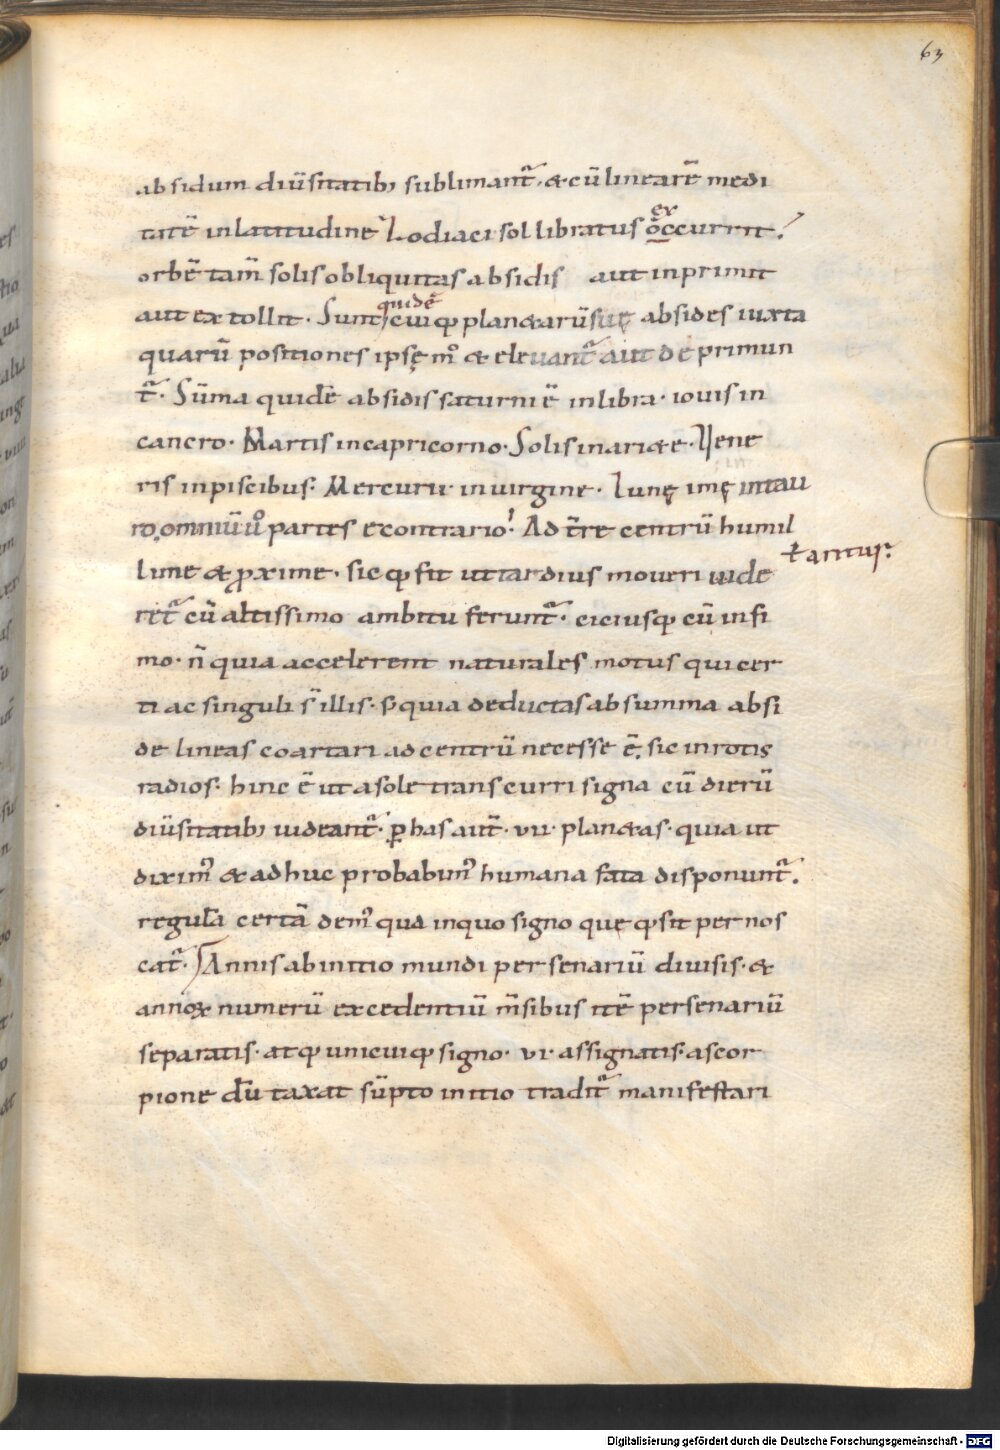 63
absidum diu̅sitatib; sublimant̃. & cu̅ linearē medi
tatē in latitudine zodiaci sol libratus ex occurrit.
orbē tam̅ solis obliquitas absidis aut inprimit
aut extollit. Sunt quidē cuiq; plan&aru̅ suę absides iuxta
quaru̅ positiones ipsę m̊ & elevant̃ aut deprimun
t̃. Su̅ma quidē absidis saturni ē in libra. iovis in
cancro. Martis in capricorno. Solis in ari&e. Vene
ris in piscibus. Mercurii in virgine. lunę imę intau
ro. omniu̅ ů partes econtrario. Ad t̅re centru̅ humil
ł aritur.
lime & p̱xime. sic q; fit ut tardius moveri vide
ret̃ cu̅ altissimo ambitu ferunt̃. ciciusq; cu̅ infi
mo. n̅ quia accelerent naturales motus qui cer
ti ac singuli s̅ illis. s; quia deductas ab summa absi
de lineas coartari ad centru̅ necesse ē. sic in rotis
radios. hinc ē ut a sole transcurri signa cu̅ dieru̅
diu̅sitatib; uideant̃. p̱ has aut̅. vii. plan&as. quia ut
diximꝰ & adhuc probabimꝰ humana fata disponunt̃.
regula̅ certā demꝰ qua in quo signo quę q; sit pernos
cat̃. Annis ab initio mundi per senariu̅ divisis. &
annoꝝ numeru̅ excedentiu̅ m̅sibus itē per senariu̅
separatis. atq; unicuiq; signo. vi. assignatis. a scor
pione du̅ taxat su̅pto initio tradit̃ manifestari
Digitalisierung gefördert durch die Deutsche Forschungsgemeinschaft - DFG